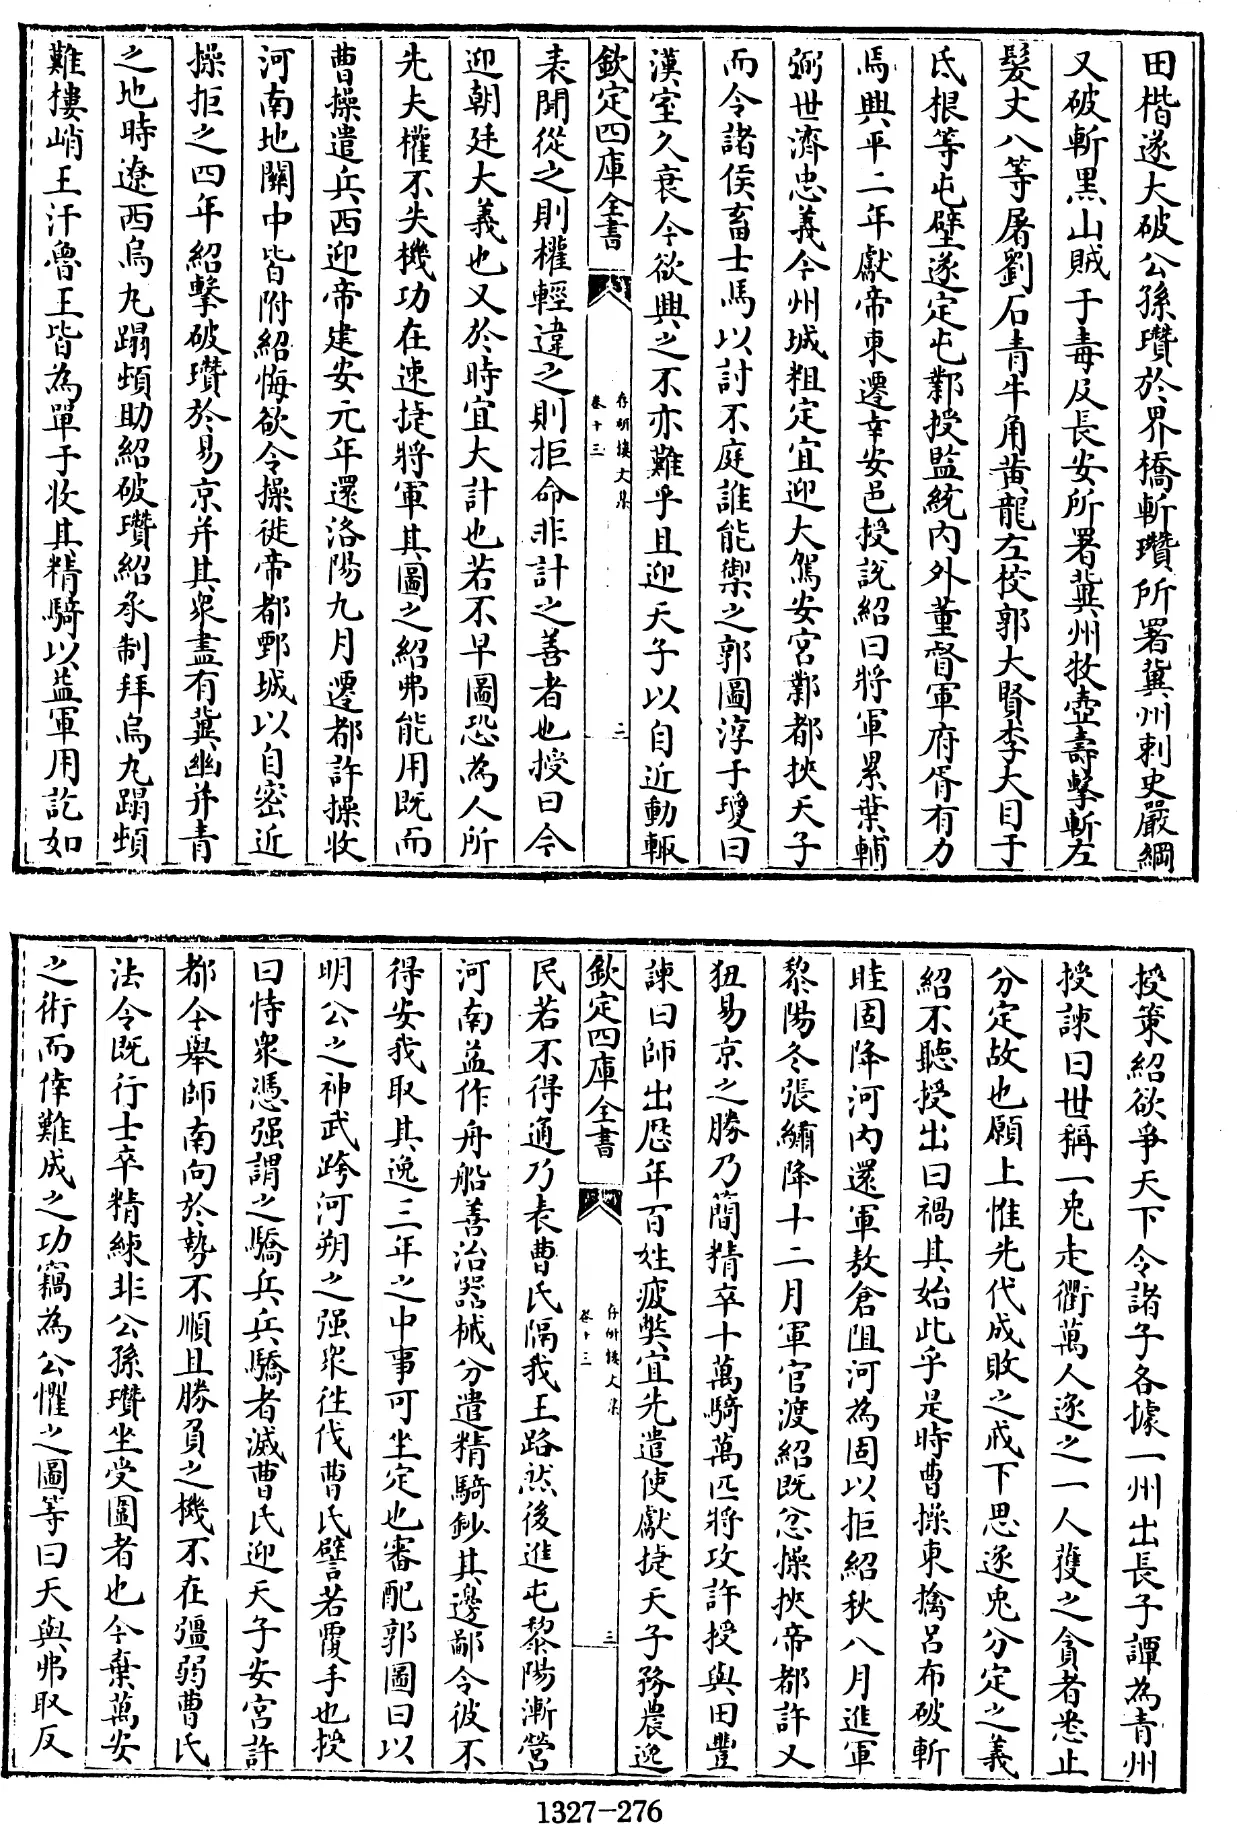 田楷遂大破公孫瓚於界橋斬瓚所署冀州刺史嚴綱
又破斬黑山賊于毒及長安所署冀州牧壺壽擊斬左
髮丈八等屠劉石青牛角黃龍左校郭大賢李大目于
氐根等屯壁遂定屯鄴授監統內外董督軍府胥有力
焉興平二年獻帝東遷幸安邑授說紹曰將軍累葉輔
弼世濟忠義今州城粗定宜迎大駕安宮鄴都挾天子
而令諸侯畜士馬以討不庭誰能禦之郭圖淳于瓊曰
漢室久衰今欲興之不亦難乎且迎天子以自近動輒
欽定四庫全書
存研樓文集
卷十三
二
表聞從之則權輕違之則拒命非計之善者也授曰今
迎朝廷大義也又於時宜大計也若不早圖恐為人所
先夫權不失機功在速捷將軍其圖之紹弗能用既而
曹操遣兵西迎帝建安元年還洛陽九月遷都許操收
河南地關中皆附紹悔欲令操徙帝都鄄城以自密近
操拒之四年紹擊破瓚於易京并其衆盡有冀幽并青
之地時遼西烏丸蹋頓助紹破瓚紹承制拜烏丸蹋頓
難樓峭王汗魯王皆為單于收其精騎以益軍用訖如
授策紹欲爭天下令諸子各據一州出長子譚為青州
授諫曰世稱一兎走衢萬人逐之一人獲之貪者悉止
分定故也願上惟先代成敗之戒下思逐兎分定之義
紹不聽授出曰禍其始此乎是時曹操東擒呂布破斬
眭固降河内還軍敖倉阻河為固以拒紹秋八月進軍
黎陽冬張繡降十二月軍官渡紹既忿操挾帝都許又
狃易京之勝乃簡精卒十萬騎萬匹將攻許授與田豐
諫曰師出歴年百姓疲獘宜先遣使獻捷天子務農逸
欽定四庫全書
存研樓文集
卷十三
三
民若不得通乃表曹氏隔我王路然後進屯黎陽漸營
河南益作舟船善治器械分遣精騎鈔其邊鄙令彼不
得安我取其逸三年之中事可坐定也審配郭圖曰以
明公之神武跨河朔之强衆徃伐曹氏譬若覆手也授
曰恃衆憑强謂之驕兵兵驕者滅曹氏迎天子安宮許
都今舉師南向於勢不順且勝負之機不在彊弱曹氏
法令既行士卒精練非公孫瓚坐受圖者也今棄萬安
之術而倖難成之功竊為公懼之圖等曰天與弗取反
1327-276